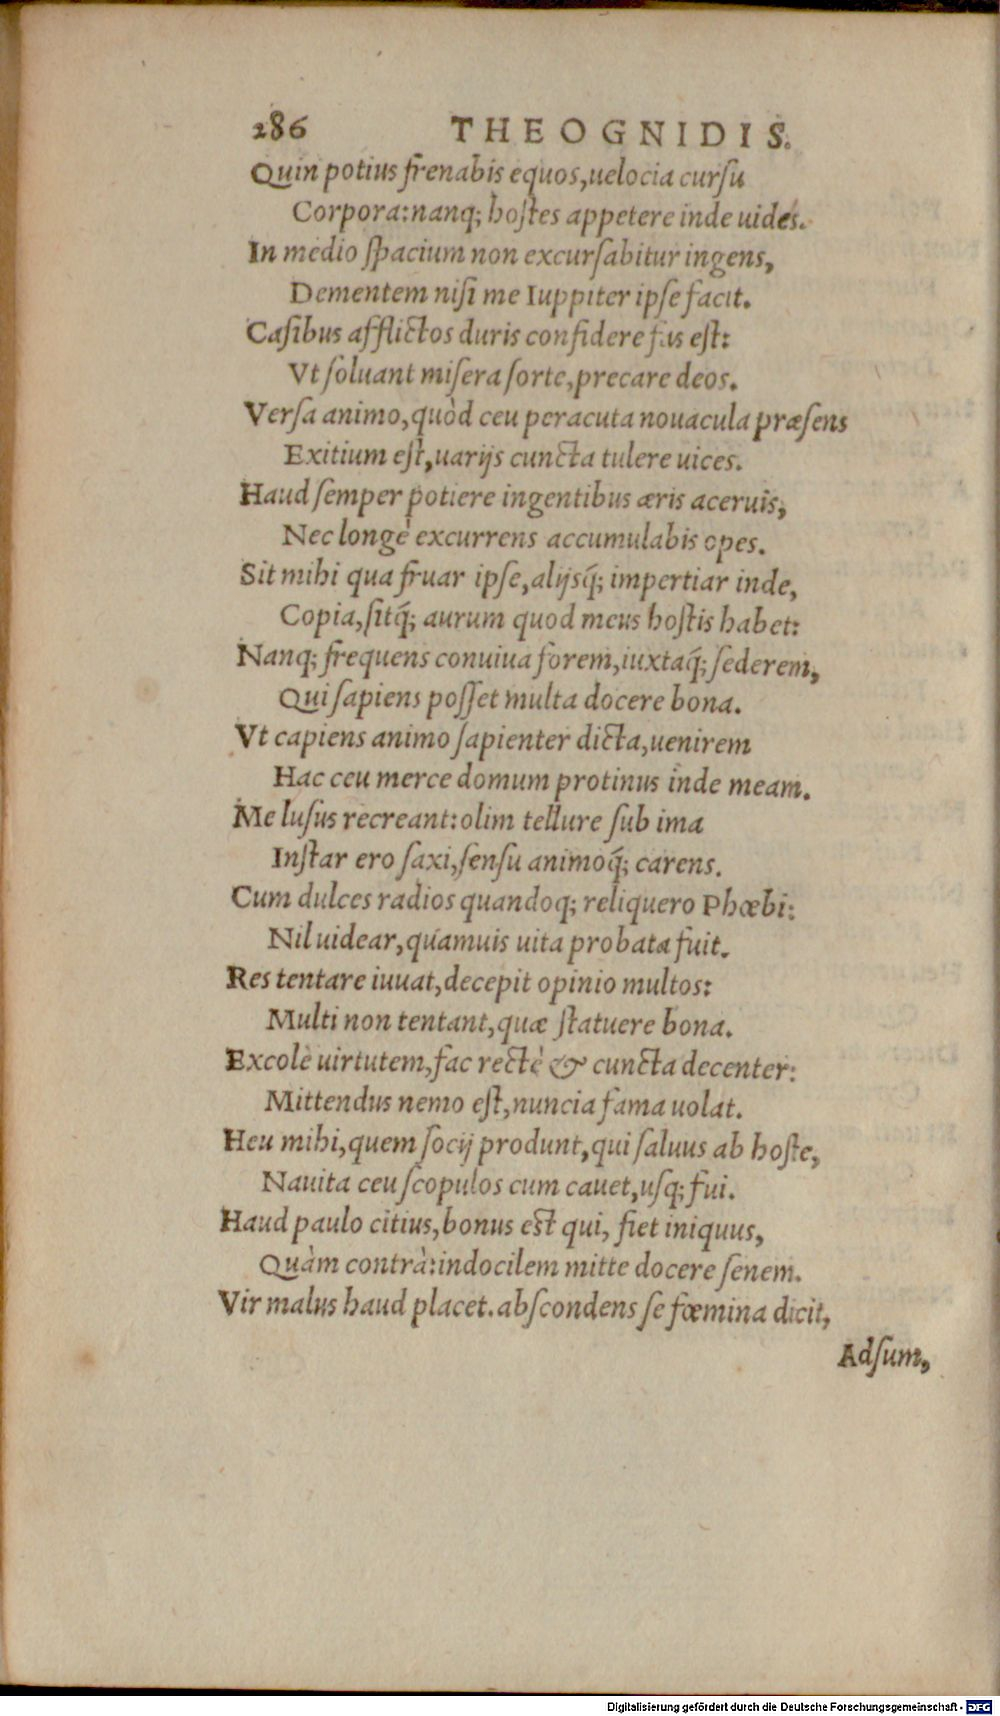 286 THEOGNIDIS.
Quin potius frenabis equos, uelocia cursu
Corpora: nanq; hostes appetere inde uides.
In medio spacium non excursabitur ingens,
Dementem nisi me Iuppiter ipse facit.
Casibus afflictos duris confidere fas est:
Vt soluant misera sorte, precare deos.
Versa animo, quòd ceu peracuta nouacula præsens
Exitium est, uarijs cuncta tulere uices.
Haud semper potiere ingentibus æris aceruis,
Nec longè excurrens accumulabis opes.
Sit mihi qua fruar ipse, alijsq́; impertiar inde,
Copia, sitq́; aurum quod meus hostis habet:
Nanq; frequens conuiua forem, iuxtaq́; sederem,
Qui sapiens posset multa docere bona.
Vt capiens animo sapienter dicta, uenirem
Hac ceu merce domum protinus inde meam.
Me lusus recreant: olim tellure sub ima
Instar ero saxi, sensu animoq́; carens.
Cum dulces radios quandoq; reliquero Phœbi:
Nil uidear, quamuis uita probata fuit.
Res tentare iuuat, decepit opinio multos:
Multi non tentant, quæ statuere bona.
Excole uirtutem, fac rectè & cuncta decenter:
Mittendus nemo est, nuncia fama uolat.
Heu mihi, quem socij produnt, qui saluus ab hoste,
Nauita ceu scopulos cum cauet, usq; fui.
Haud paulo citius, bonus est qui, fiet iniquus,
Quàm contrà: indocilem mitte docere senem.
Vir malus haud placet. abscondens se fœmina dicit,
Adsum,
Digitalisierung gefördert durch die Deutsche Forschungsgemeinschaft - DFG